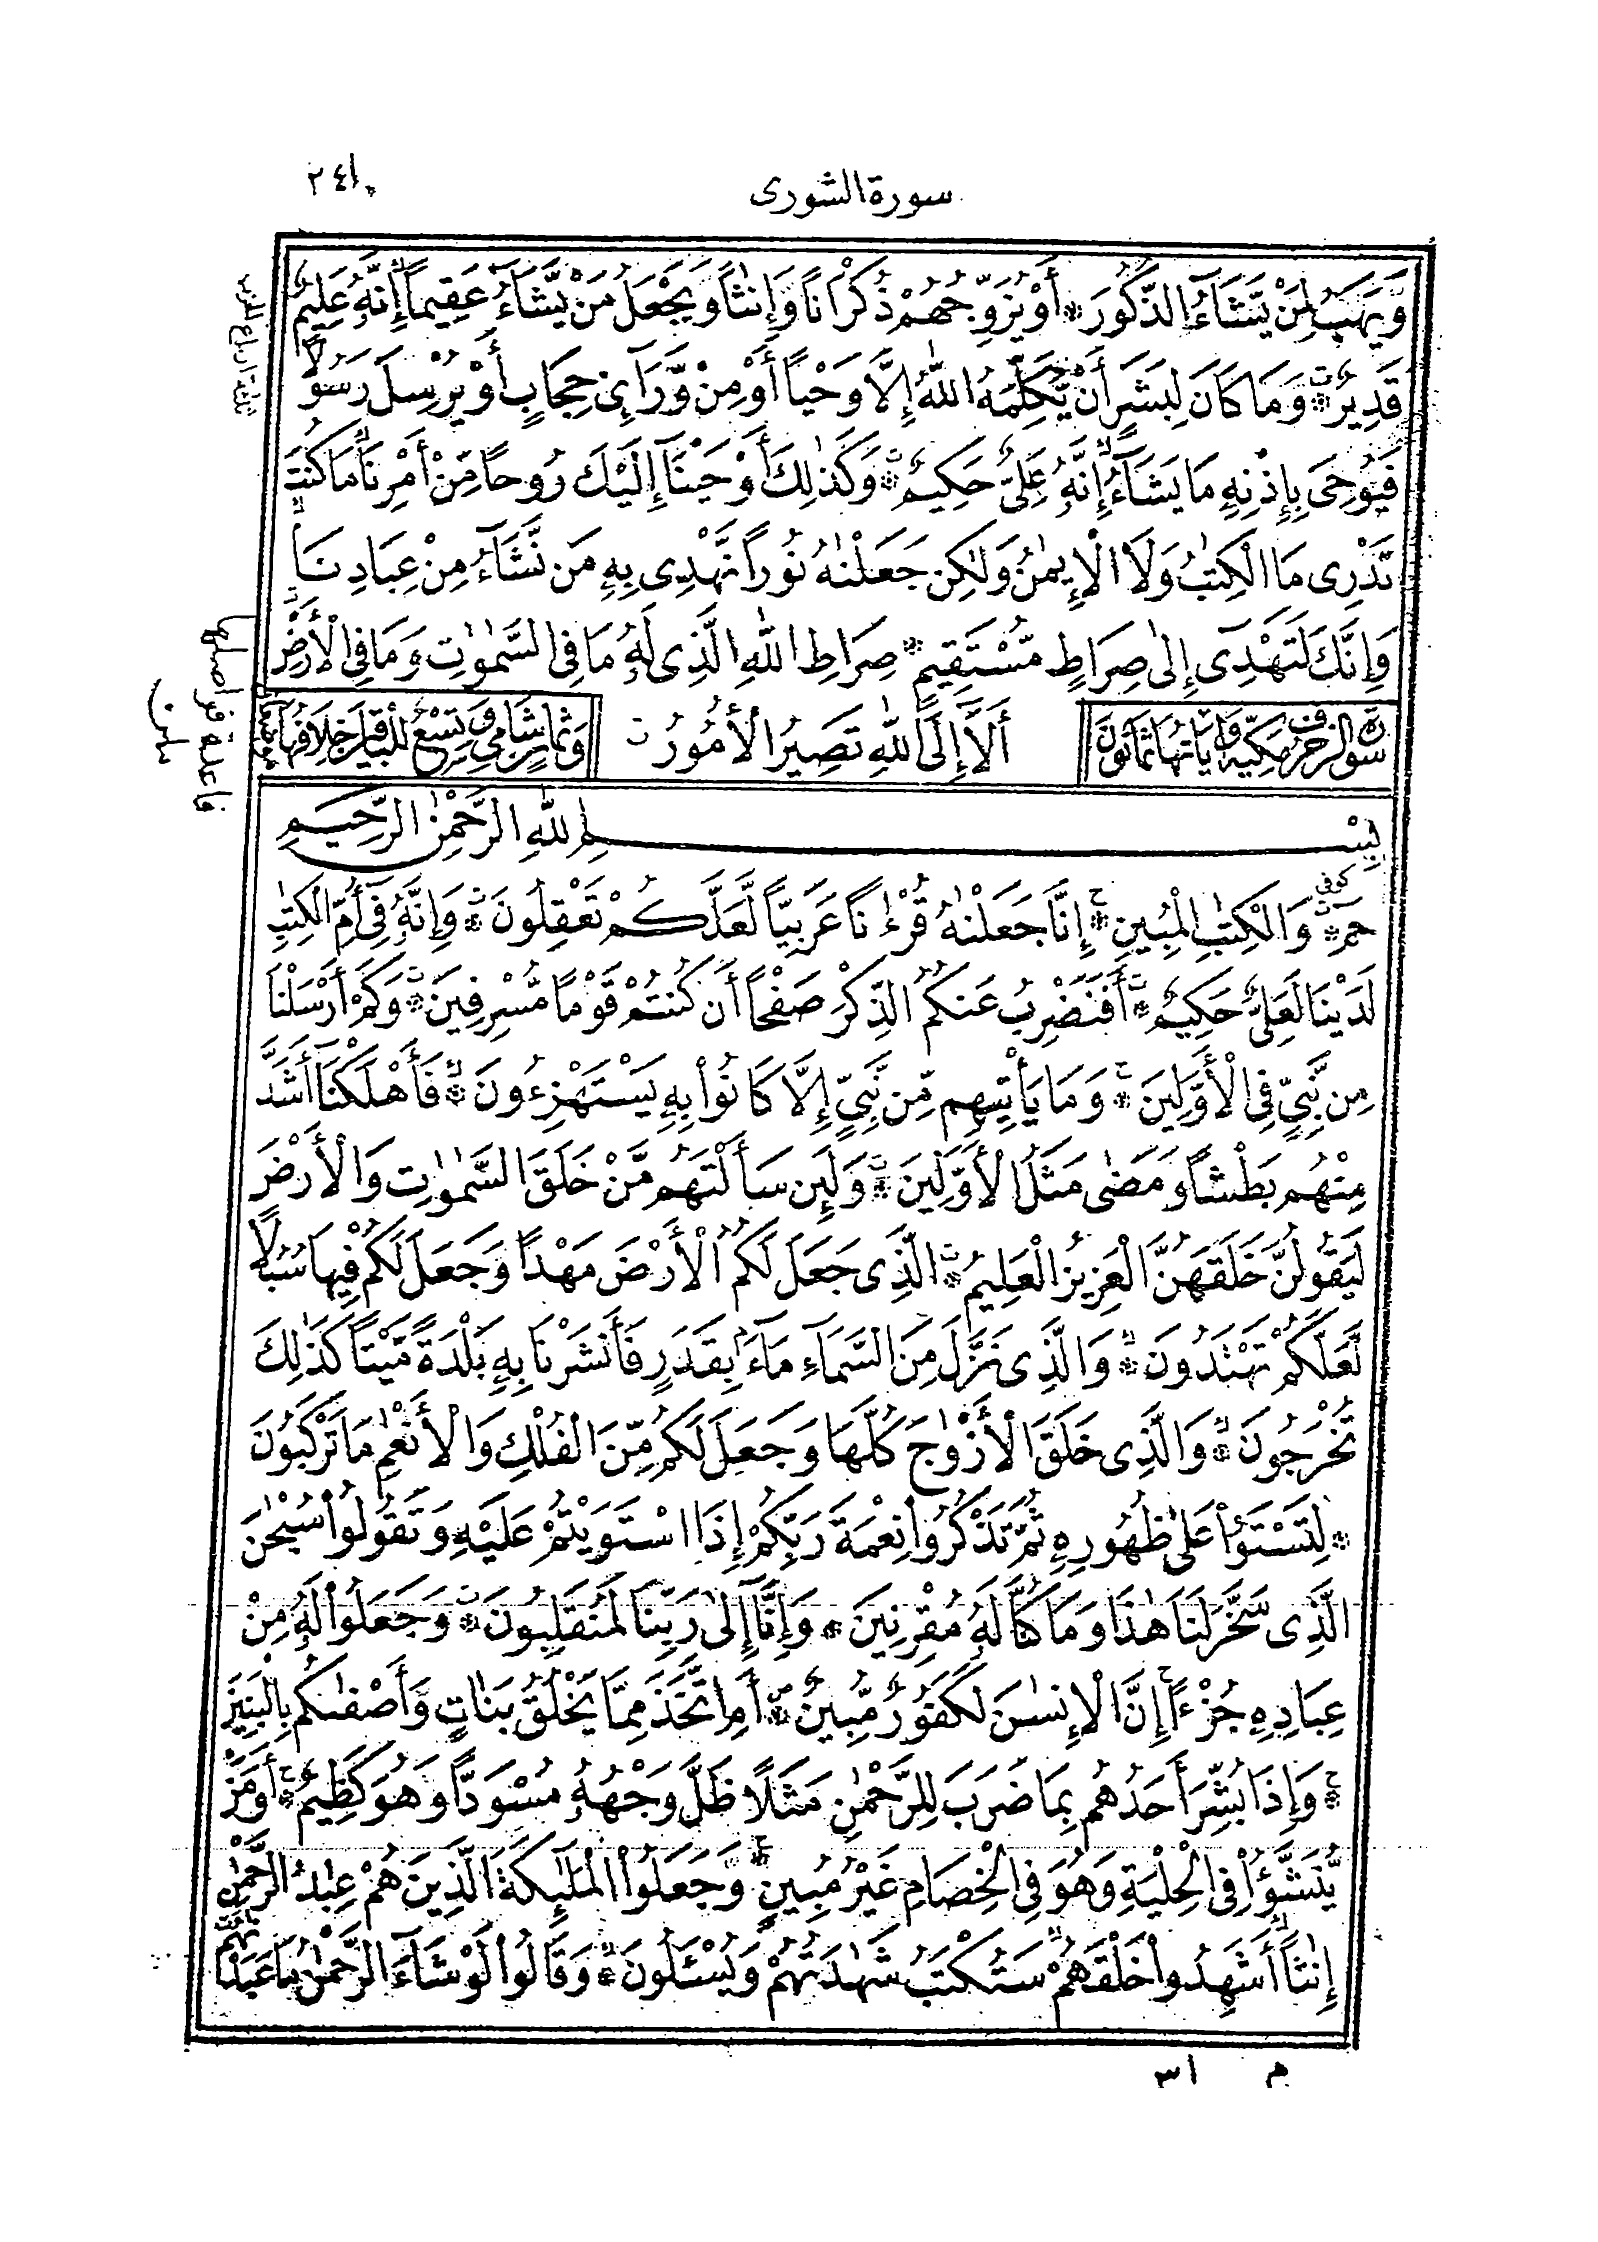 سورة الشورى
٢٤١
وَيَهَبُ لِمَنْ يَّشَآءُ الذُّكُورَ ۞ أَوْ يُزَوِّجُهُمْ ذُكْرَانًا وَإِنٰثًا وَيَجْعَلُ مَنْ يَّشَآءُ عَقِيمًا إِنَّهُ عَلِيمٌ
قَدِيرٌ ۞ وَمَا كَانَ لِبَشَرٍ أَنْ يُّكَلِّمَهُ اللّٰهُ إِلَّا وَحْيًا أَوْ مِنْ وَّرَآئِ حِجَابٍ أَوْ يُرْسِلَ رَسُولًا
فَيُوحِىَ بِإِذْنِهِ مَا يَشَآءُ إِنَّهُ عَلِىٌّ حَكِيمٌ ۞ وَكَذٰلِكَ أَوْحَيْنَآ إِلَيْكَ رُوحًا مِّنْ أَمْرِنَا مَا كُنْتَ
تَدْرِى مَا الْكِتٰبُ وَلَا الْإِيمٰنُ وَلٰكِن جَعَلْنٰهُ نُورًا نَّهْدِى بِهِ مَن نَّشَآءُ مِنْ عِبَادِنَا
وَإِنَّكَ لَتَهْدِىٓ إِلىٰ صِرَاطٍ مُّسْتَقِيمٍ ۞ صِرَاطِ اللّٰهِ الَّذِى لَهُ مَا فِى السَّمٰوٰتِ وَمَا فِى الْأَرْضِ
أَلَآ إِلَى اللّٰهِ تَصِيرُ الْأُمُورُ
سورة الزخرف مكية وآياتها ثمانون
وثمان شامى وتسع للباقين خلافها
بِسْمِ اللّٰهِ الرَّحْمٰنِ الرَّحِيمِ
كوفى
حمٓ ۞ وَالْكِتٰبِ الْمُبِينِ ۞ إِنَّا جَعَلْنٰهُ قُرْءٰنًا عَرَبِيًّا لَّعَلَّكُمْ تَعْقِلُونَ ۞ وَإِنَّهُ فِىٓ أُمِّ الْكِتٰبِ
لَدَيْنَا لَعَلِىٌّ حَكِيمٌ ۞ أَفَنَضْرِبُ عَنكُمُ الذِّكْرَ صَفْحًا أَن كُنتُمْ قَوْمًا مُّسْرِفِينَ ۞ وَكَمْ أَرْسَلْنَا
مِن نَّبِىٍّ فِى الْأَوَّلِينَ ۞ وَمَا يَأْتِيهِم مِّن نَّبِىٍّ إِلَّا كَانُوا بِهِ يَسْتَهْزِءُونَ ۞ فَأَهْلَكْنَآ أَشَدَّ
مِنْهُم بَطْشًا وَمَضىٰ مَثَلُ الْأَوَّلِينَ ۞ وَلَئِن سَأَلْتَهُم مَّنْ خَلَقَ السَّمٰوٰتِ وَالْأَرْضَ
لَيَقُولُنَّ خَلَقَهُنَّ الْعَزِيزُ الْعَلِيمُ ۞ الَّذِى جَعَلَ لَكُمُ الْأَرْضَ مَهْدًا وَجَعَلَ لَكُمْ فِيهَا سُبُلًا
لَّعَلَّكُمْ تَهْتَدُونَ ۞ وَالَّذِى نَزَّلَ مِنَ السَّمَآءِ مَآءً بِقَدَرٍ فَأَنشَرْنَا بِهِ بَلْدَةً مَّيْتًا كَذٰلِكَ
تُخْرَجُونَ ۞ وَالَّذِى خَلَقَ الْأَزْوٰجَ كُلَّهَا وَجَعَلَ لَكُم مِّنَ الْفُلْكِ وَالْأَنْعٰمِ مَا تَرْكَبُونَ
۞ لِتَسْتَوُۥا عَلىٰ ظُهُورِهِ ثُمَّ تَذْكُرُوا نِعْمَةَ رَبِّكُمْ إِذَا اسْتَوَيْتُمْ عَلَيْهِ وَتَقُولُوا سُبْحٰنَ
الَّذِى سَخَّرَ لَنَا هٰذَا وَمَا كُنَّا لَهُ مُقْرِنِينَ ۞ وَإِنَّآ إِلىٰ رَبِّنَا لَمُنقَلِبُونَ ۞ وَجَعَلُوا لَهُ مِنْ
عِبَادِهِ جُزْءًا إِنَّ الْإِنسٰنَ لَكَفُورٌ مُّبِينٌ ۞ أَمِ اتَّخَذَ مِمَّا يَخْلُقُ بَنَاتٍ وَأَصْفٰىكُم بِالْبَنِينَ
۞ وَإِذَا بُشِّرَ أَحَدُهُم بِمَا ضَرَبَ لِلرَّحْمٰنِ مَثَلًا ظَلَّ وَجْهُهُ مُسْوَدًّا وَهُوَ كَظِيمٌ ۞ أَوَمَنْ
يُنَشَّؤُا فِى الْحِلْيَةِ وَهُوَ فِى الْخِصَامِ غَيْرُ مُبِينٍ ۞ وَجَعَلُوا الْمَلٰٓئِكَةَ الَّذِينَ هُمْ عِبٰدُ الرَّحْمٰنِ
إِنٰثًا أَشَهِدُوا خَلْقَهُمْ سَتُكْتَبُ شَهٰدَتُهُمْ وَيُسْـَٔلُونَ ۞ وَقَالُوا لَوْ شَآءَ الرَّحْمٰنُ مَا عَبَدْنٰهُم
م ٣١